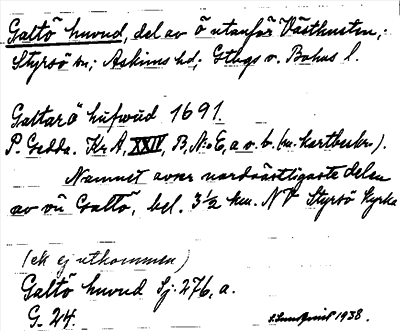 Galtö huvud, del av ö utanför Västkusten,
Styrsö sn; Askims hd; Gtbgs o. Bohus l.
Galtarö hufwud 1691.
P. Gedda. Kr A, XXIV, B, N:o 6, a o. b. (sv. kartbeskr.).
Namnet avser nordvästligaste delen
av ön Galtö, bel. 3½ km. NV Styrsö kyrka
(ek ej utkommen)
Galtö huvud Sj. 276, a.
G. 24.
1938.